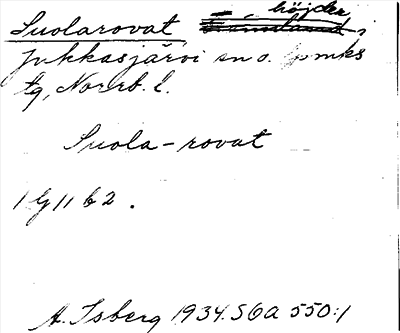 Suolarovat höjder,
Jukkasjärvi sn o. lpmks
tg, Norrb. l.
Suola-rovat
1 G 11 b 2.
A. Isberg 1934. SGA 550:1